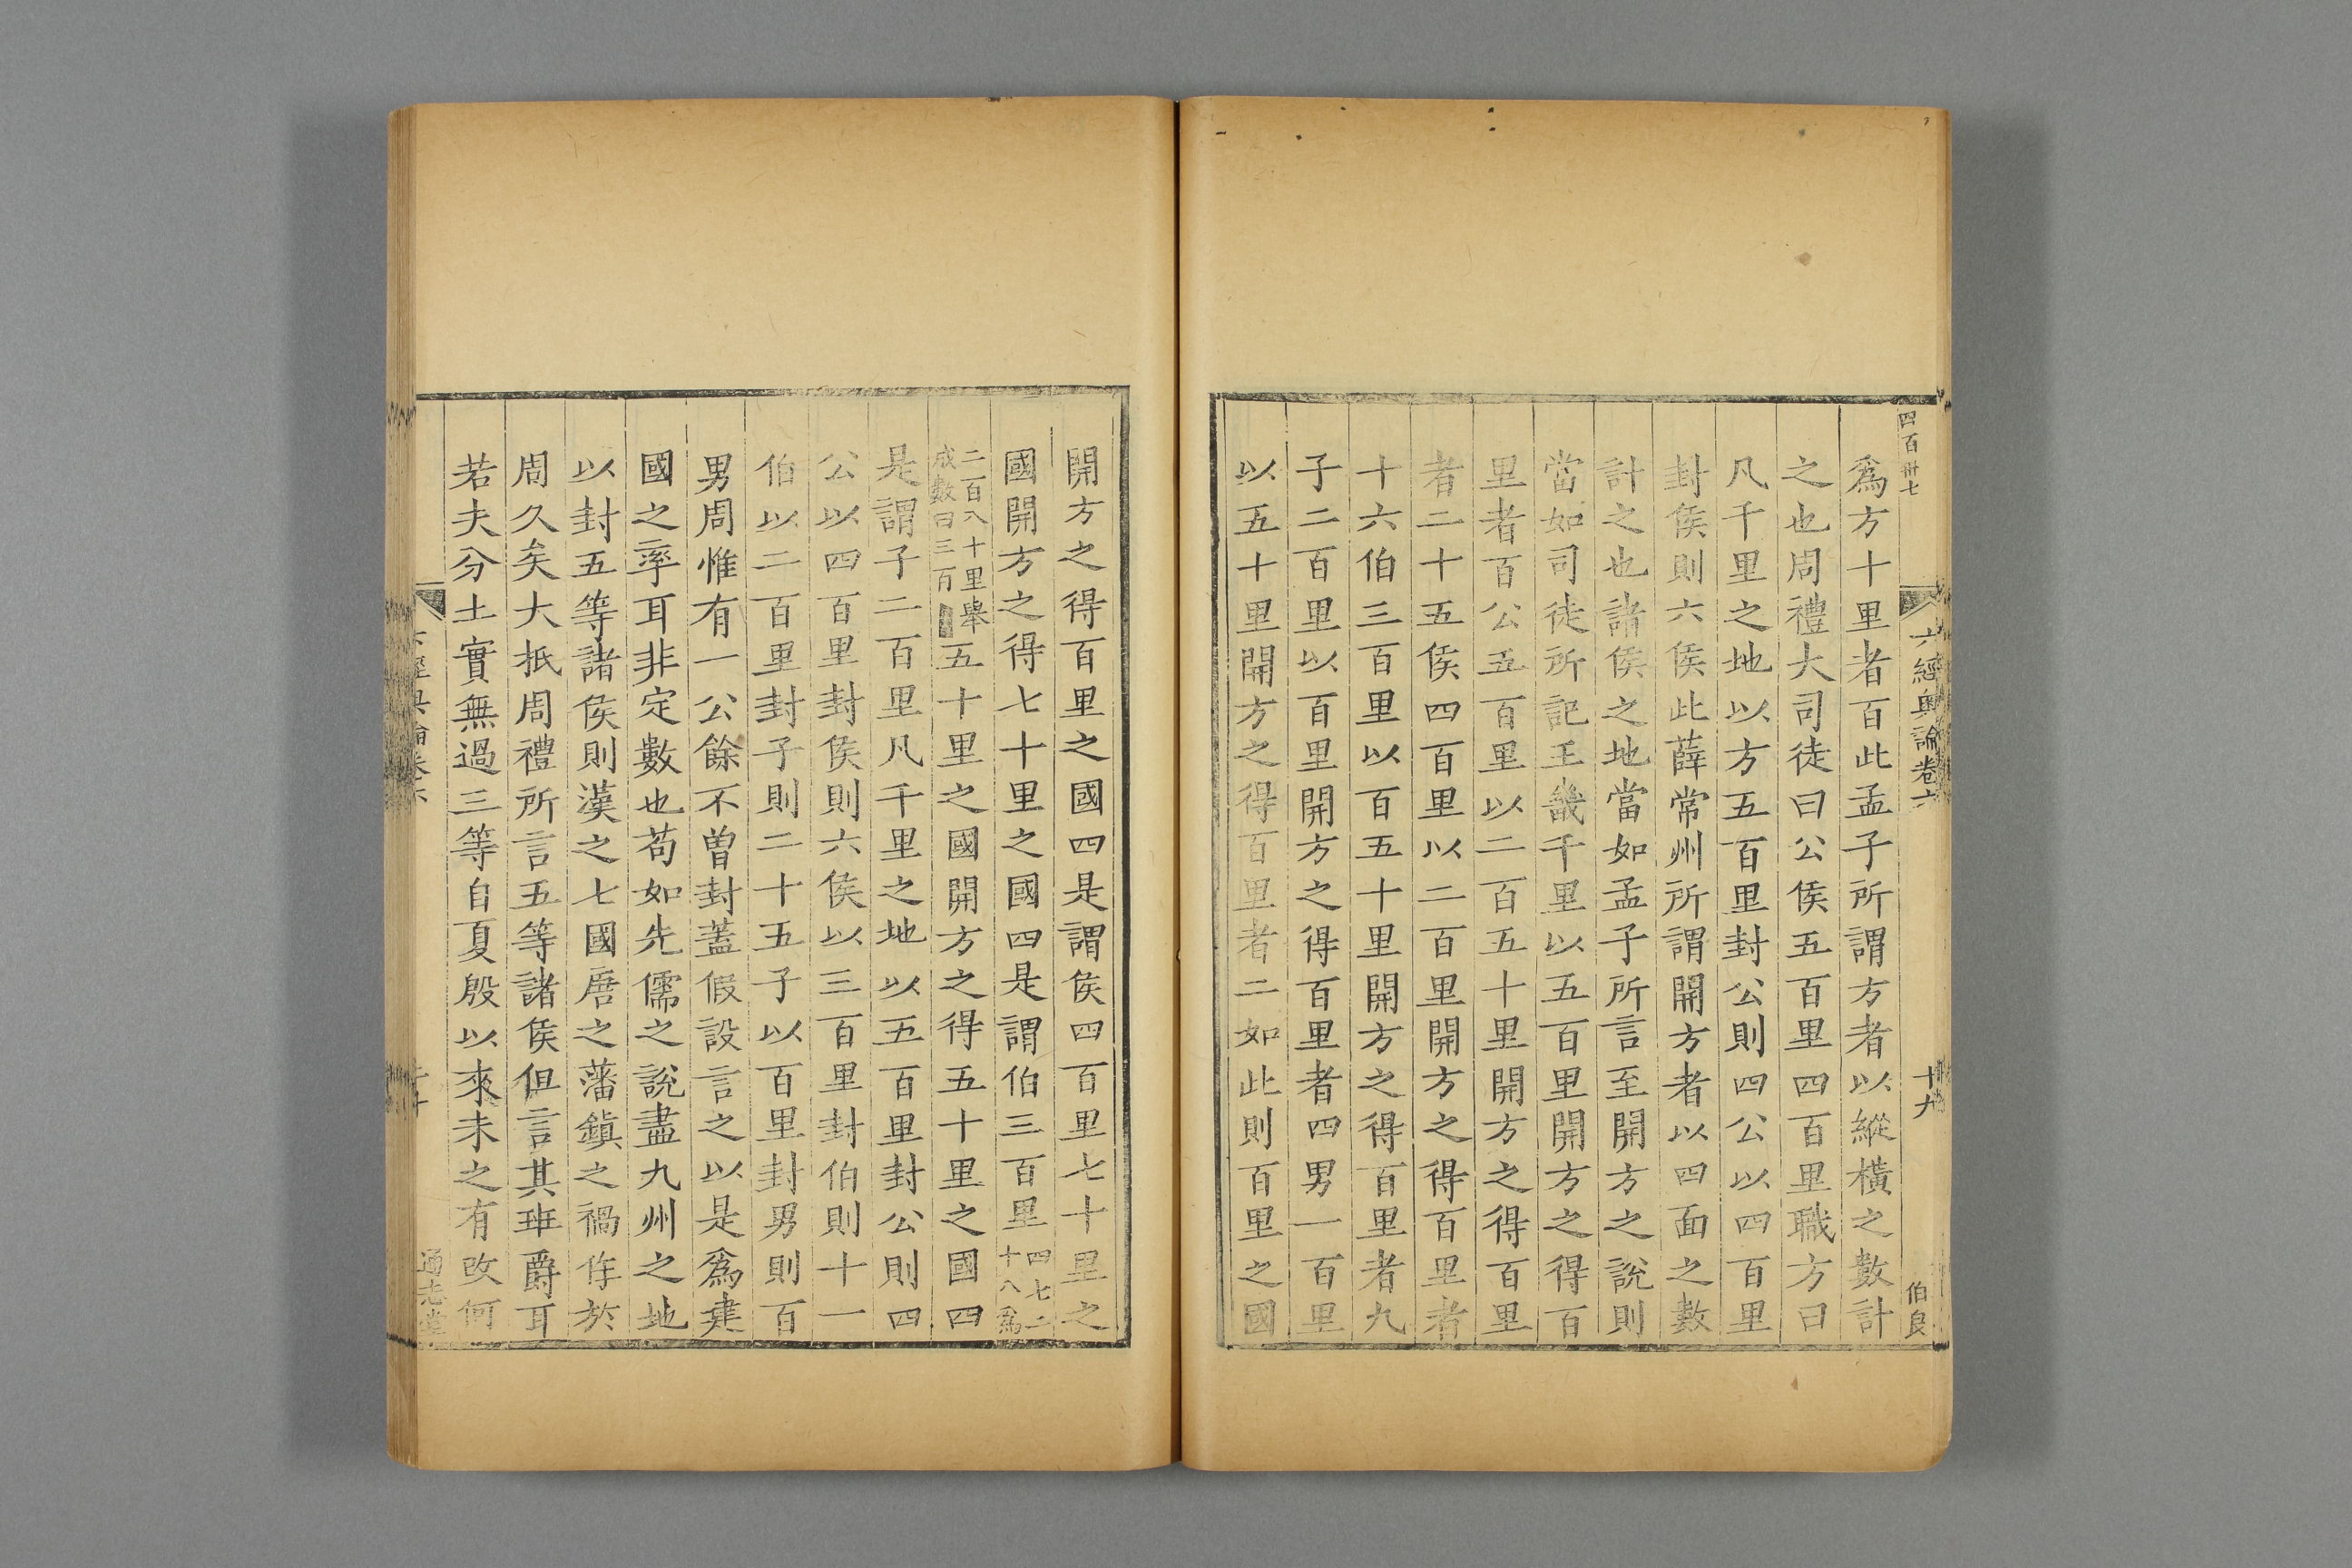 四百卅七
六經奥論卷六
十九
伯良
爲方十里者百此孟子所謂方者以縱横之數計
之也周禮大司徒曰公侯五百里四百里職方曰
凡千里之地以方五百里封公則四公以四百里
封侯則六侯此薛常州所謂開方者以四面之數
計之也諸侯之地當如孟子所言至開方之說則
當如司徒所記王畿千里以五百里開方之得百
里者百公五百里以二百五十里開方之得百里
者二十五侯四百里以二百里開方之得百里者
十六伯三百里以百五十里開方之得百里者九
子二百里以百里開方之得百里者四男一百里
以五十里開方之得百里者二如此則百里之國
開方之得百里之國四是謂侯四百里七十里之
國開方之得七十里之國四是謂伯三百里四七二
十八爲
二百八十里舉
成數曰三百
五十里之國開方之得五十里之國四
是謂子二百里凡千里之地以五百里封公則四
公以四百里封侯則六侯以三百里封伯則十一
伯以二百里封子則二十五子以百里封男則百
男周惟有一公餘不曽封蓋假設言之以是爲建
國之率耳非定數也苟如先儒之說盡九州之地
以封五等諸侯則漢之七國唐之藩鎮之禍作於
周久矣大抵周禮所言五等諸侯但言其班爵耳
若夫分土實無過三等自夏殷以來未之有改何
通志堂